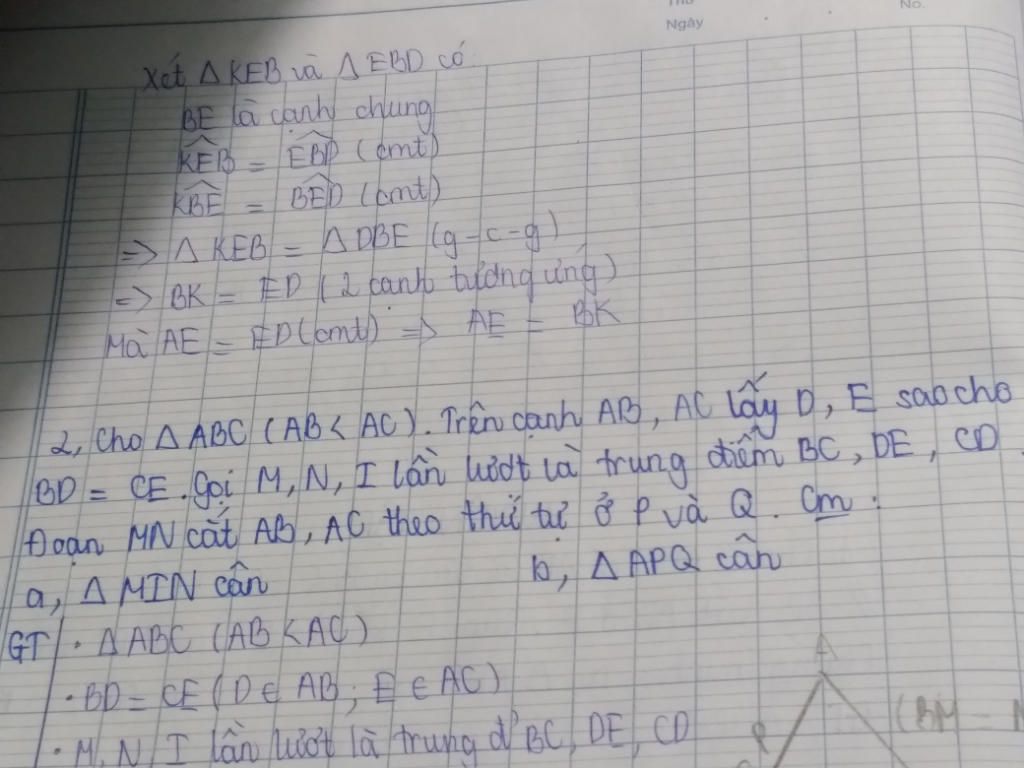 Thứ
Ngày
No.
Xét △KEB và △EBD có
BE là cạnh chung
KEB = EBD (cmt)
KBE = BED (cmt)
=> △KEB = △DBE (g-c-g)
=> BK = ED (2 cạnh tương ứng)
Mà AE = ED (cmt) => AE = BK
2, Cho △ABC (AB < AC). Trên cạnh AB, AC lấy D, E sao cho
BD = CE. Gọi M, N, I lần lượt là trung điểm BC, DE, CD.
Đoạn MN cắt AB, AC theo thứ tự ở P và Q. Cm:
a, △MIN cân b, △APQ cân
GT · △ABC (AB < AC)
· BD = CE (D ∈ AB; E ∈ AC)
A
(BM = N
P
· M, N, I lần lượt là trung đ' BC, DE, CD